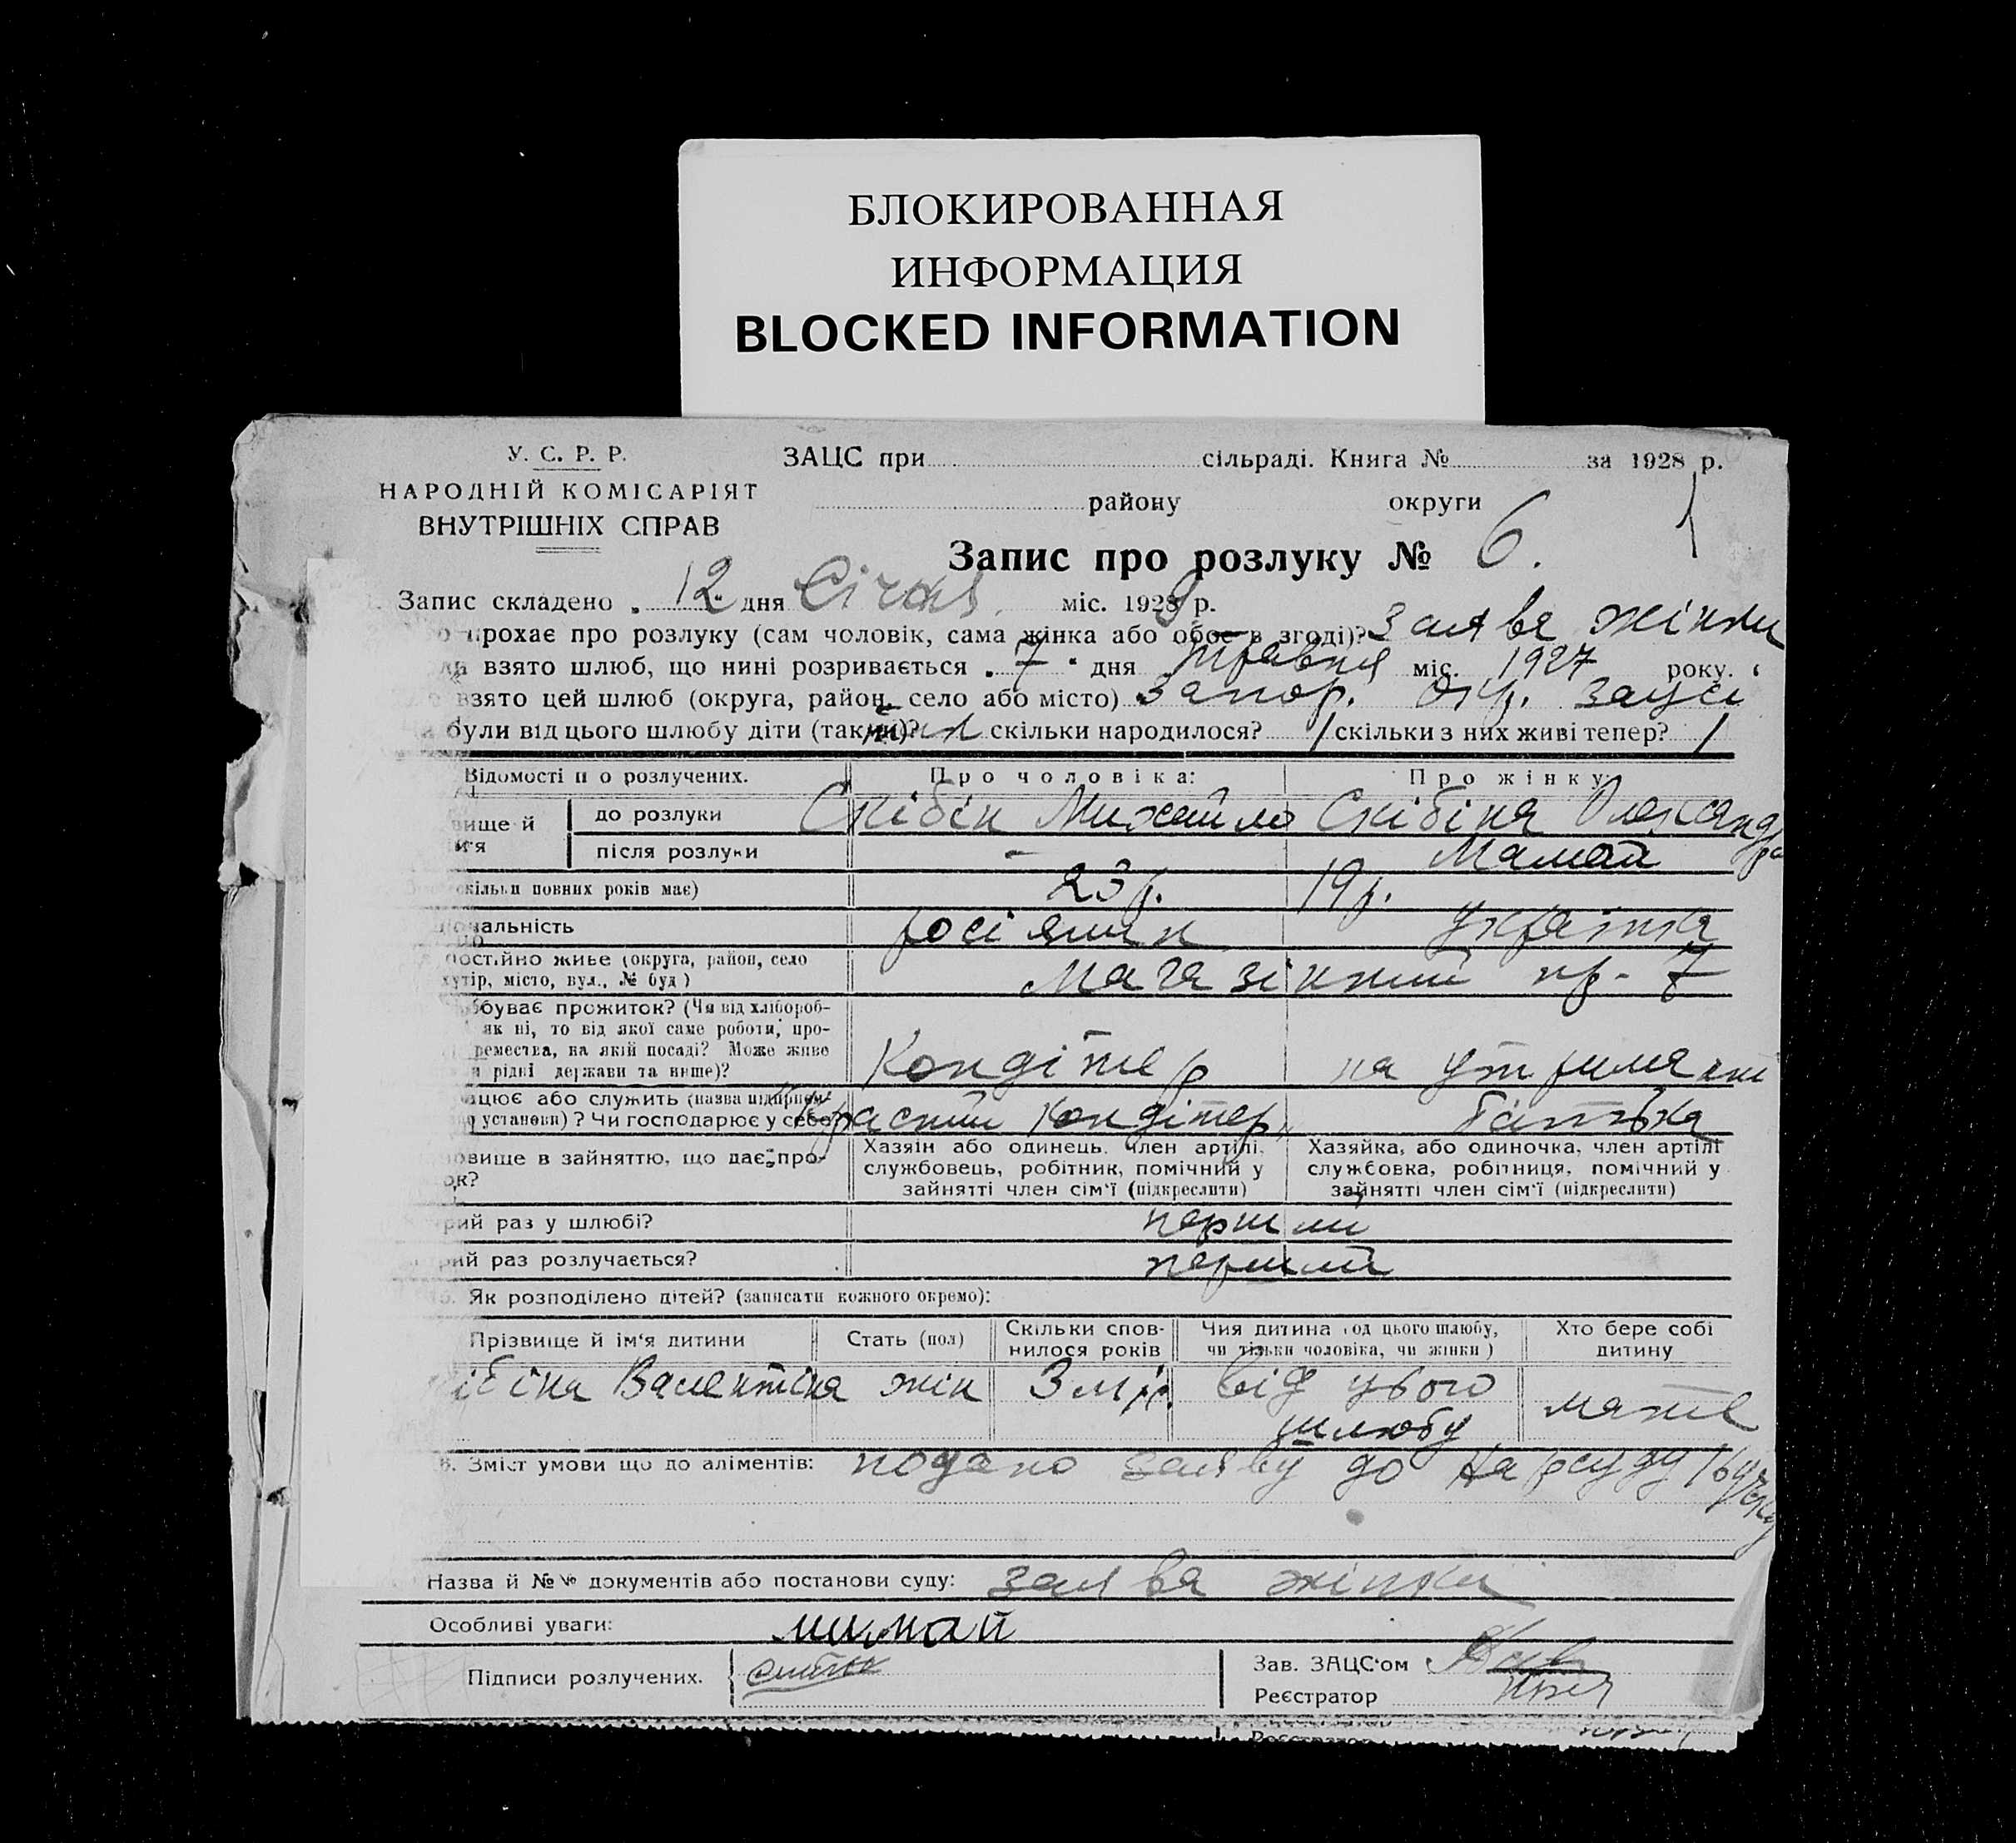 БЛОКИРОВАННАЯ
ИНФОРМАЦИЯ
BLOCKED INFORMATION
У. С. Р. Р.
НАРОДНІЙ КОМІСАРІЯТ
ВНУТРІШНІХ СПРАВ
ЗАЦС при сільраді. Книга № за 1928 р.
району округи
1
Запис про розлуку № 6.
Запис складено 12 дня Січня міс. 1929 р.
прохає про розлуку (сам чоловік, сама жінка або обоє в згоді)? Заява жінки
взято шлюб, що нині розривається 7 дня травня міс. 1927 року.
взято цей шлюб (округа, район, село або місто) Запор. окр. зацсі
були від цього шлюбу діти (так, ні)? скільки народилося? 1 скільки з них живі тепер? 1
Відомості п о розлучених. Про чоловіка: Про жінку:
вище й до розлуки Скібін Михайло Скібіна Олександра
м'я після розлуки — Мамай
скільки повних років має) 23 р. 19 р.
нальність росіянин українка
постійно живе (округа, район, село
хутір, місто, вул., № буд) Магазінний пр- 7
буває прожиток? (Чи від хлібороб-
як ні, то від якої саме роботи, про-
ремества, на якій посаді? Може живе
рідні держави та инше)? Кондітер на утриманні
ацює або служить (назва підприєм-
установи)? Чи господарює у себе? кондітер батька
овище в зайняттю, що дає про-
ок?
Хазяін або одинець, член артілі, службовець, робітник, помічний у зайнятті член сім'ї (підкреслити)
Хазяйка, або одиночка, член артілі службовка, робітниця, помічний у зайнятті член сім'ї (підкреслити)
рий раз у шлюбі? перший
рий раз розлучається? перший
Як розподілено дітей? (записати кожного окремо):
Прізвище й ім'я дитини Стать (пол) Скільки спов-нилося років Чия дитина (од цього шлюбу, чи тільки чоловіка, чи жінки) Хто бере собі дитину
ібіна Валентіна жін 3 міс. від цього шлюбу мати
Зміст умови що до аліментів: подано заяву до Нарсуду
Назва й №№ документів або постанови суду: заява жінки
Особливі уваги:
Підписи розлучених.
Зав. ЗАЦС'ом
Реєстратор